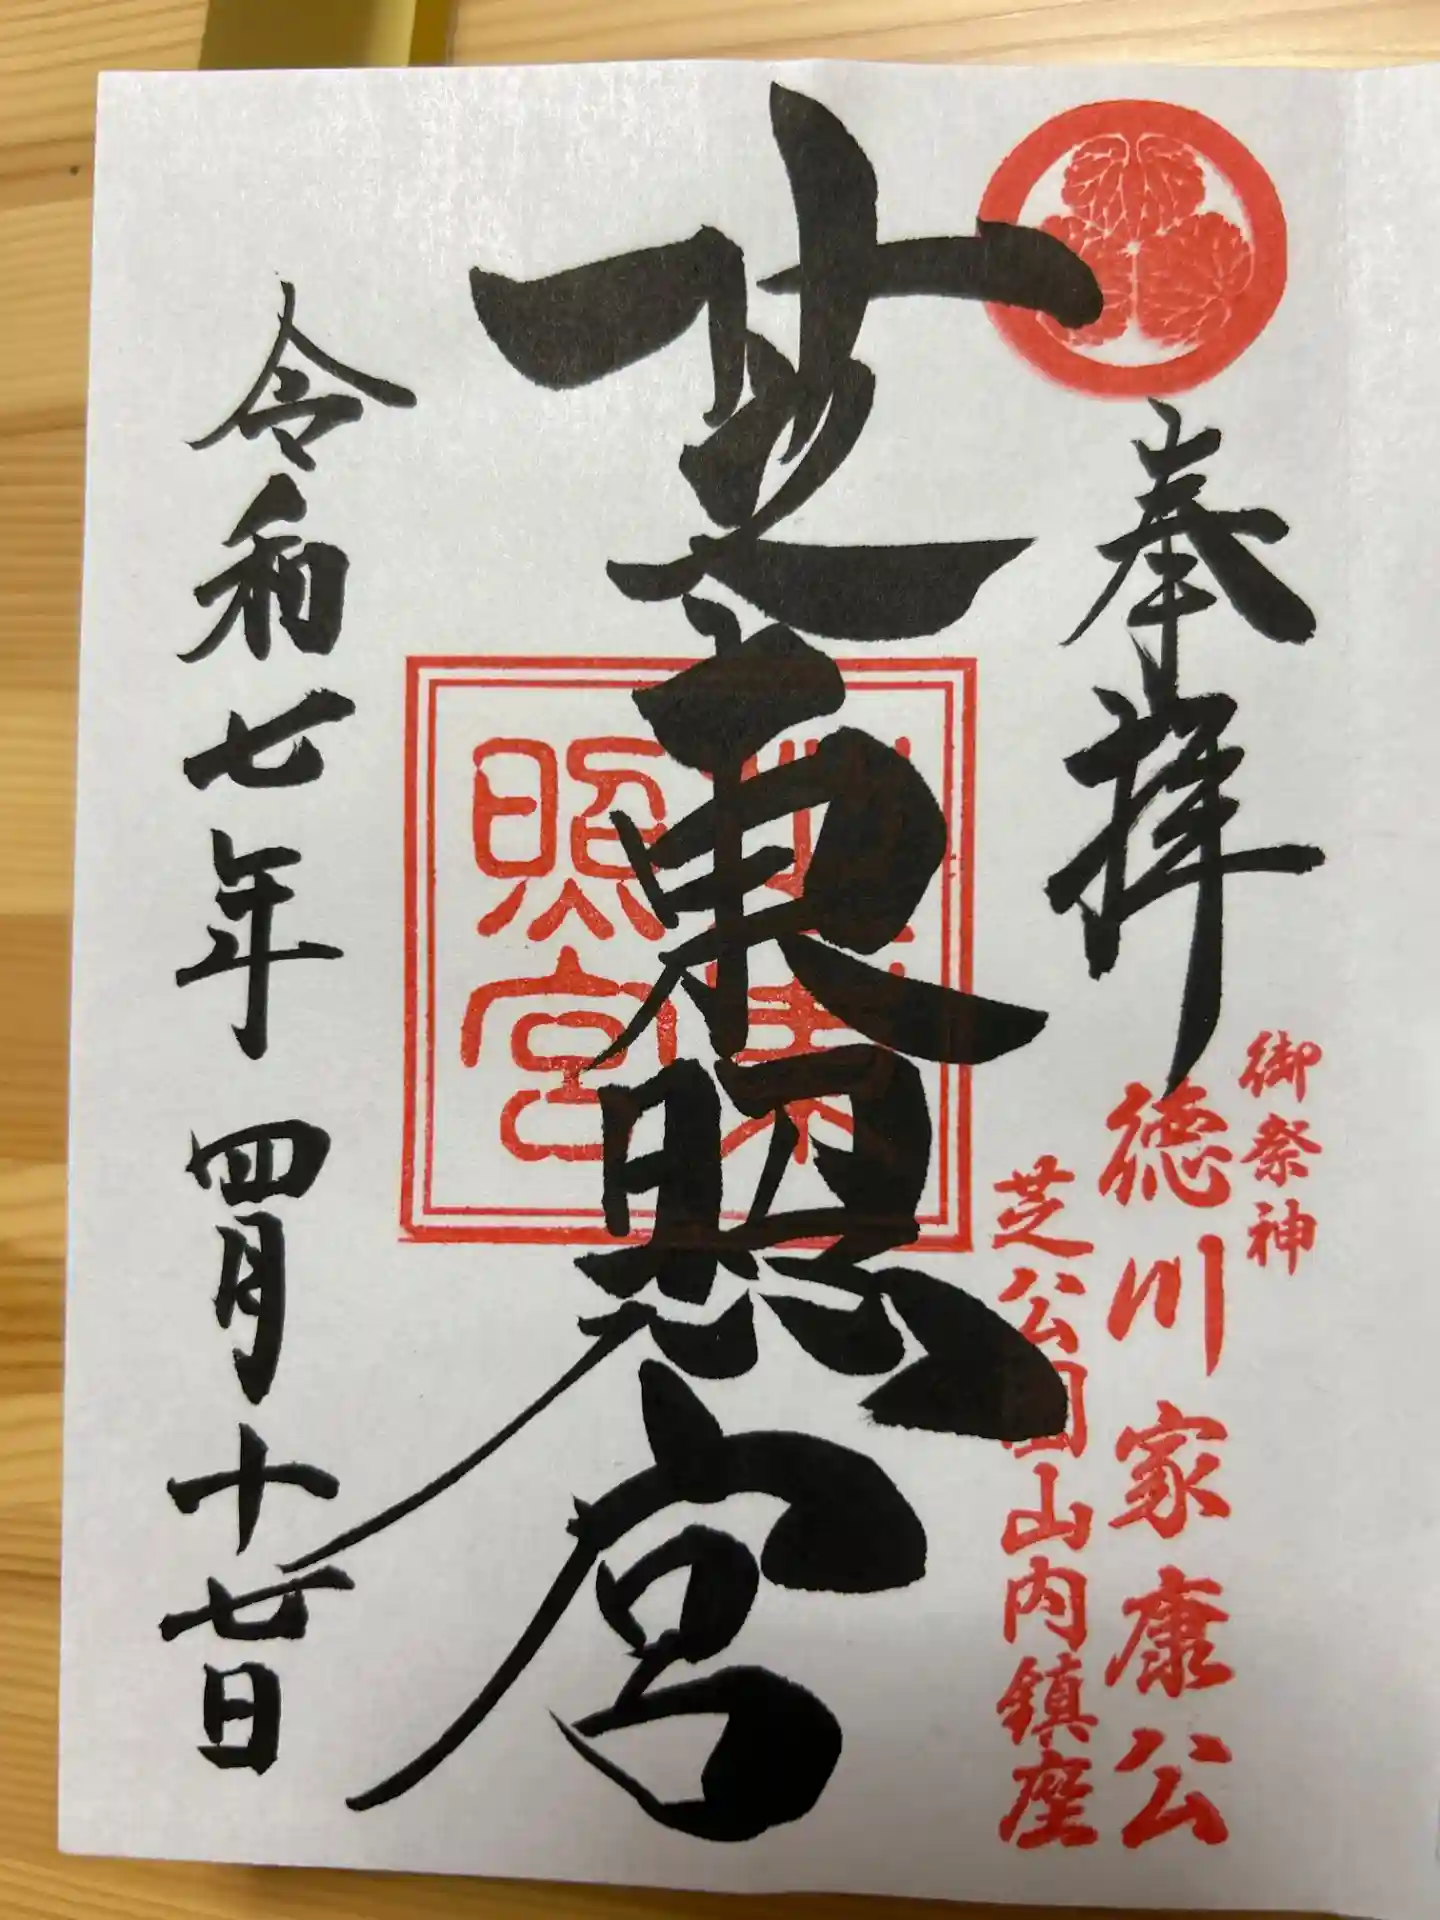 奉拝
御祭神
徳川家康公
芝公園山内鎮座
芝東照宮
照宮
令和七年四月十七日